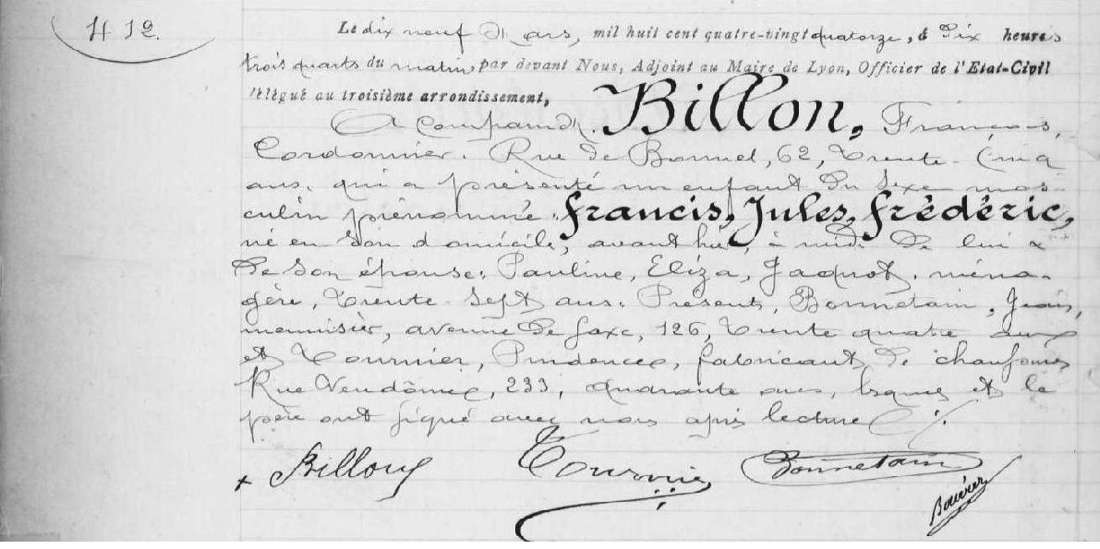 412.
Le dix neuf Mars, mil huit cent quatre-vingt quatorze, à Dix heures
trois quarts du matin, par devant Nous, Adjoint au Maire de Lyon, Officier de l'Etat-Civil
délégué au troisième arrondissement,
A comparu Billon, François,
Cordonnier. Rue de Bonnel, 62, trente-cinq
ans, qui a présenté un enfant du sexe mas-
culin prénommé: Francis, Jules, Frédéric,
né en son domicile, avant hier, à midi de lui &
de son épouse: Pauline, Eliza, Jaquot, ména-
gère, trente-sept ans. Présents, Bonnetain, Jean,
menuisier, avenue de Saxe, 126, trente quatre ans
et Tournier, Prudence, fabricant de
Rue Vendôme, 233, quarante ans, lesquels et le
père ont signé avec nous après lecture
Billon
Tournier
Bonnetain